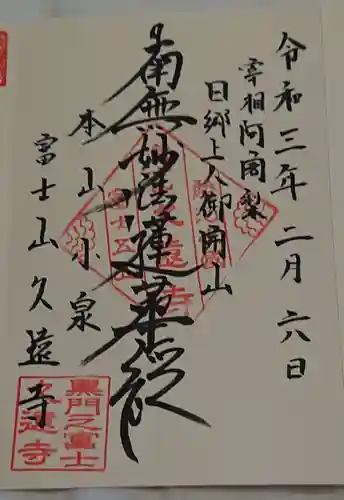 令和三年二月六日
宰相阿闍梨
日郷上人御開山
南無妙法蓮華経
本山小泉
富士山久遠寺
黒門之富士
久遠寺